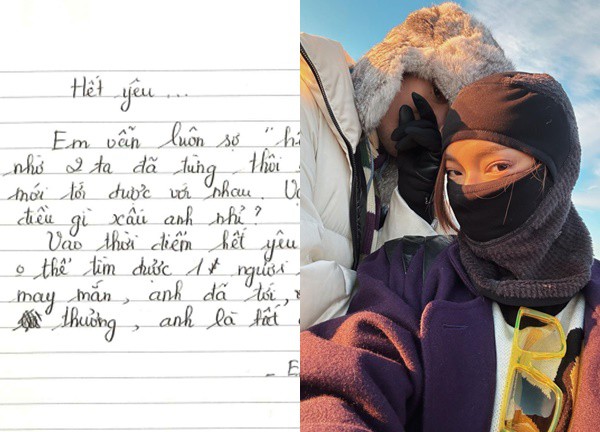 Hết yêu ...
Em vẫn luôn sợ "
nhỏ 2 ta đã từng thôi
mới tới được với nhau.
điều gì xấu anh nhỉ?
Vào thời điểm hết yêu
thể tìm được 1 người
may mắn, anh đã tới,
thưởng, anh là tốt